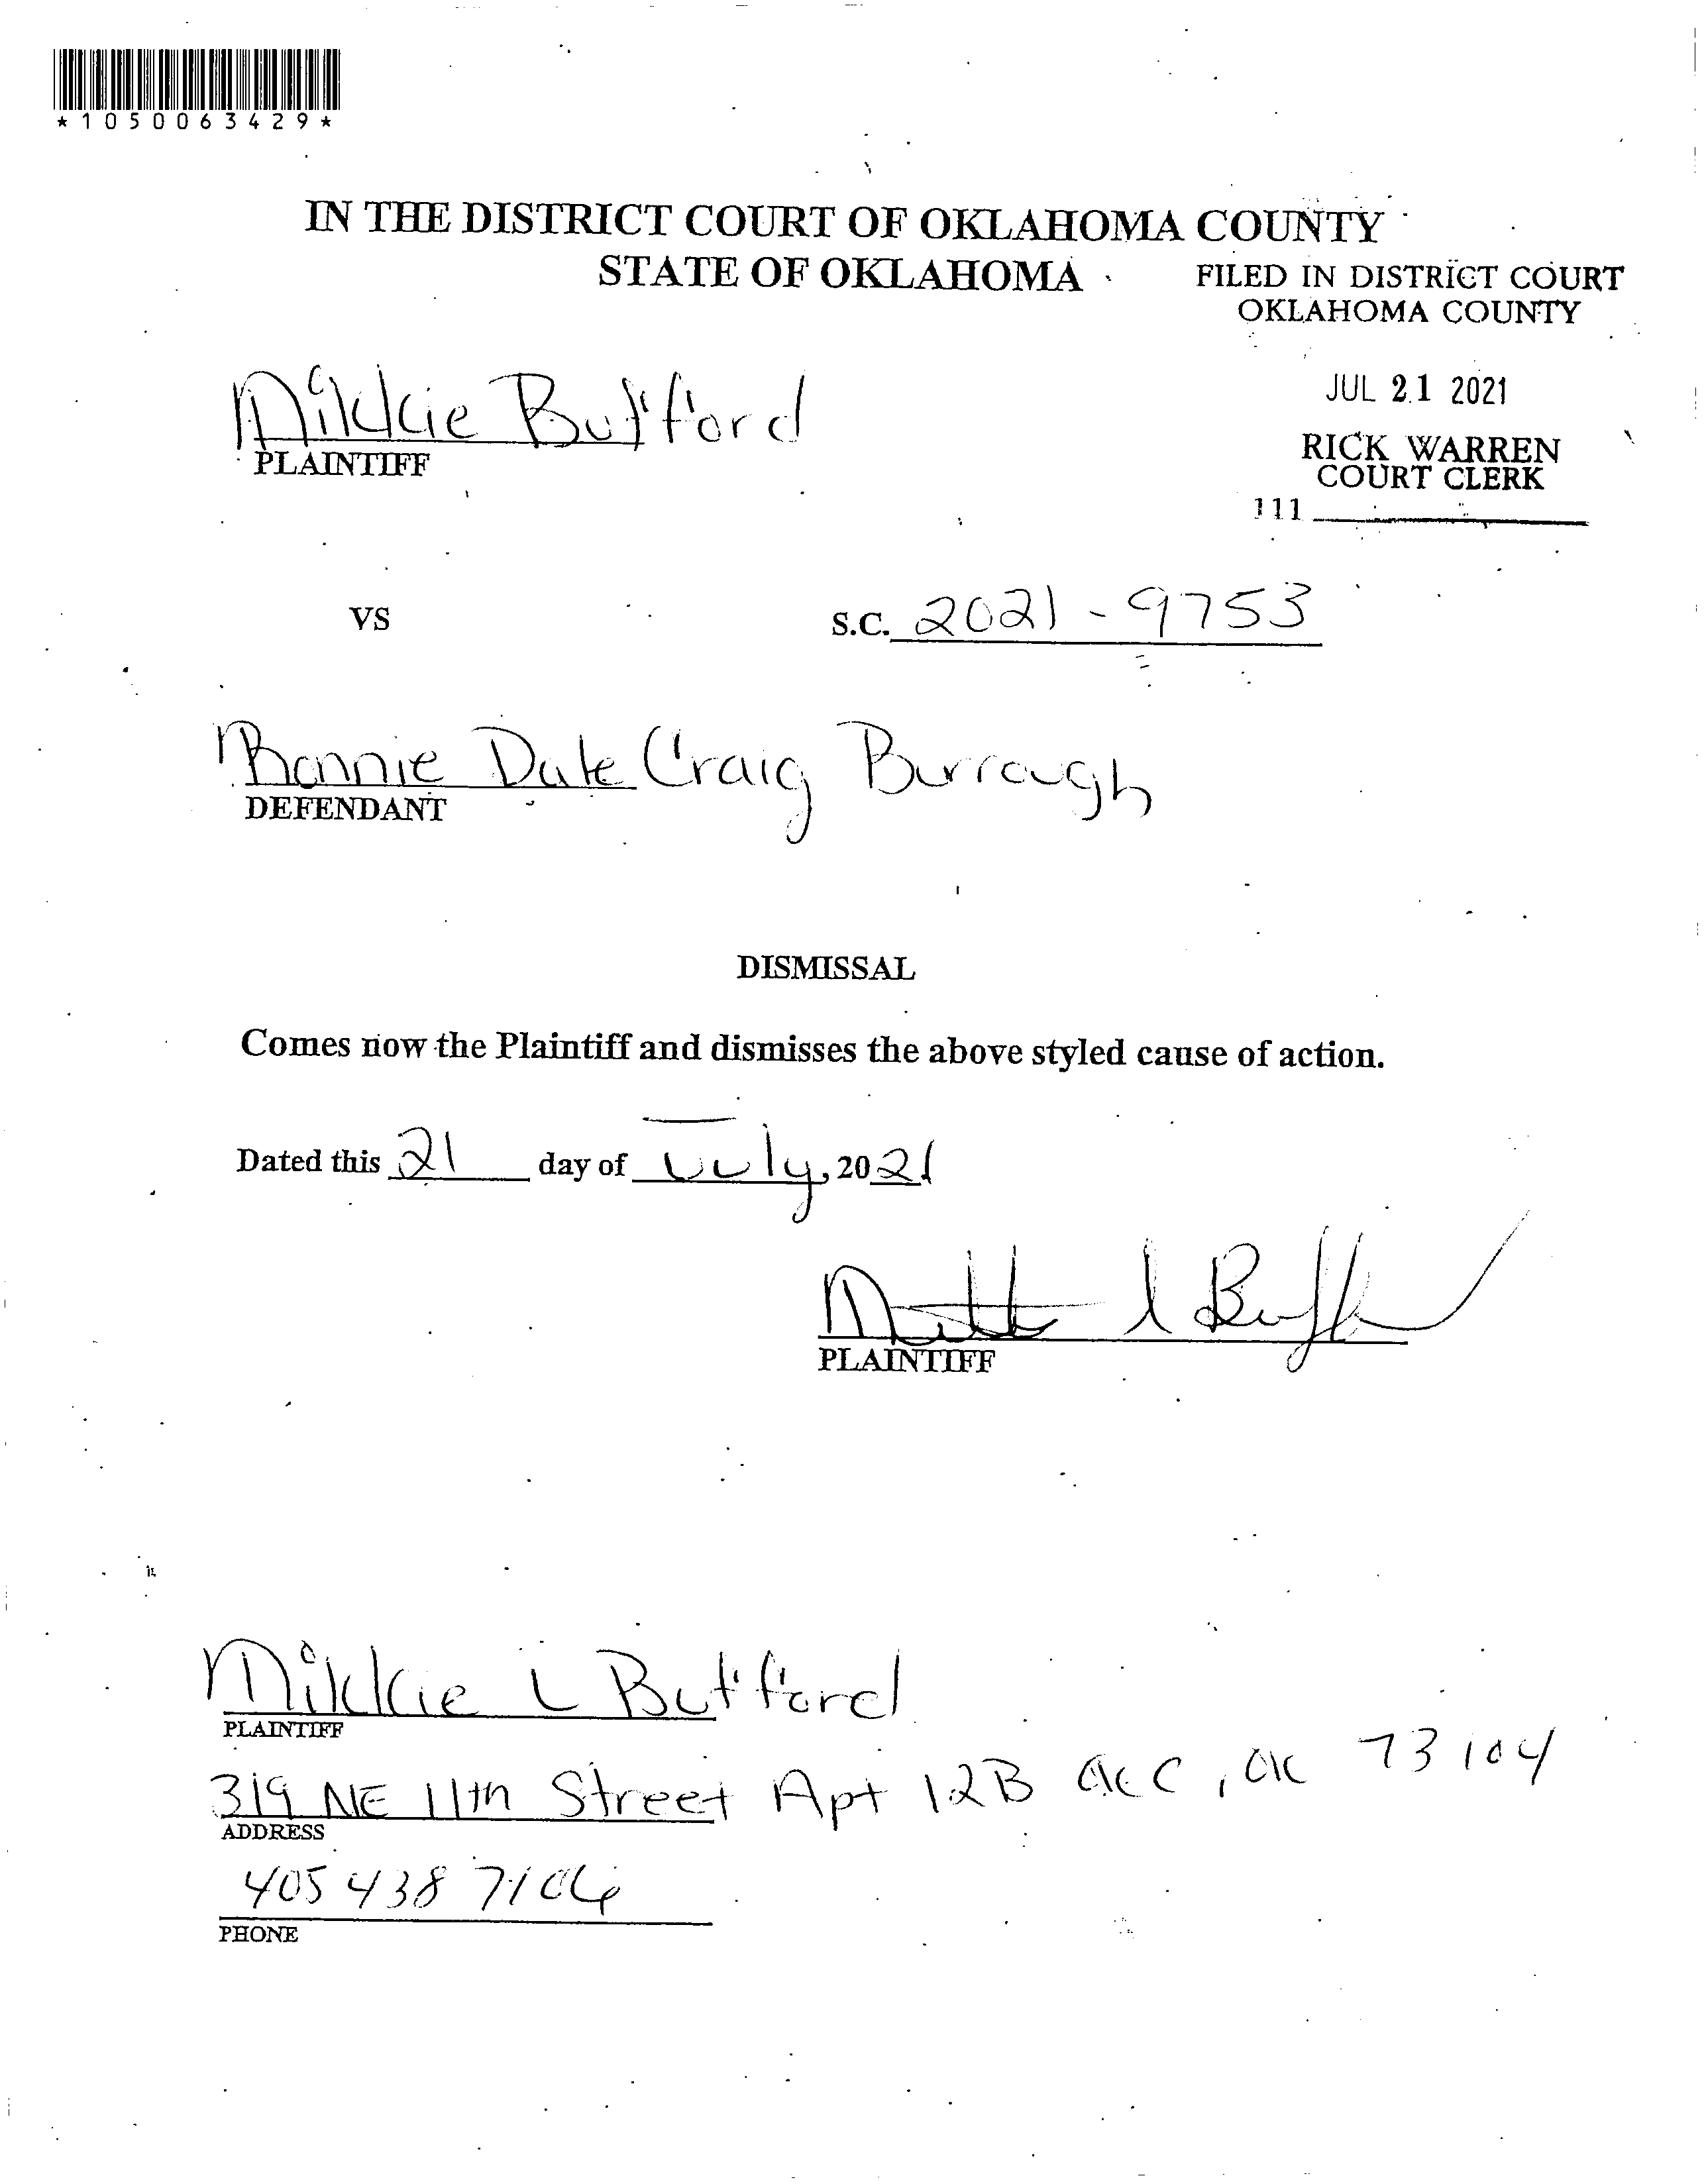 *1050063429*
IN THE DISTRICT COURT OF OKLAHOMA COUNTY
STATE OF OKLAHOMA
FILED IN DISTRICT COURT
OKLAHOMA COUNTY
JUL 21 2021
RICK WARREN
COURT CLERK
111
Mikkie Bufford
PLAINTIFF
VS
S.C. 2021-9753
Bonnie Dale Craig Burrough
DEFENDANT
DISMISSAL
Comes now the Plaintiff and dismisses the above styled cause of action.
Dated this 21 day of July, 2021
PLAINTIFF
Mikkie L Bufford
PLAINTIFF
319 NE 11th Street Apt 12B OKC, OK 73104
ADDRESS
405 438 7106
PHONE